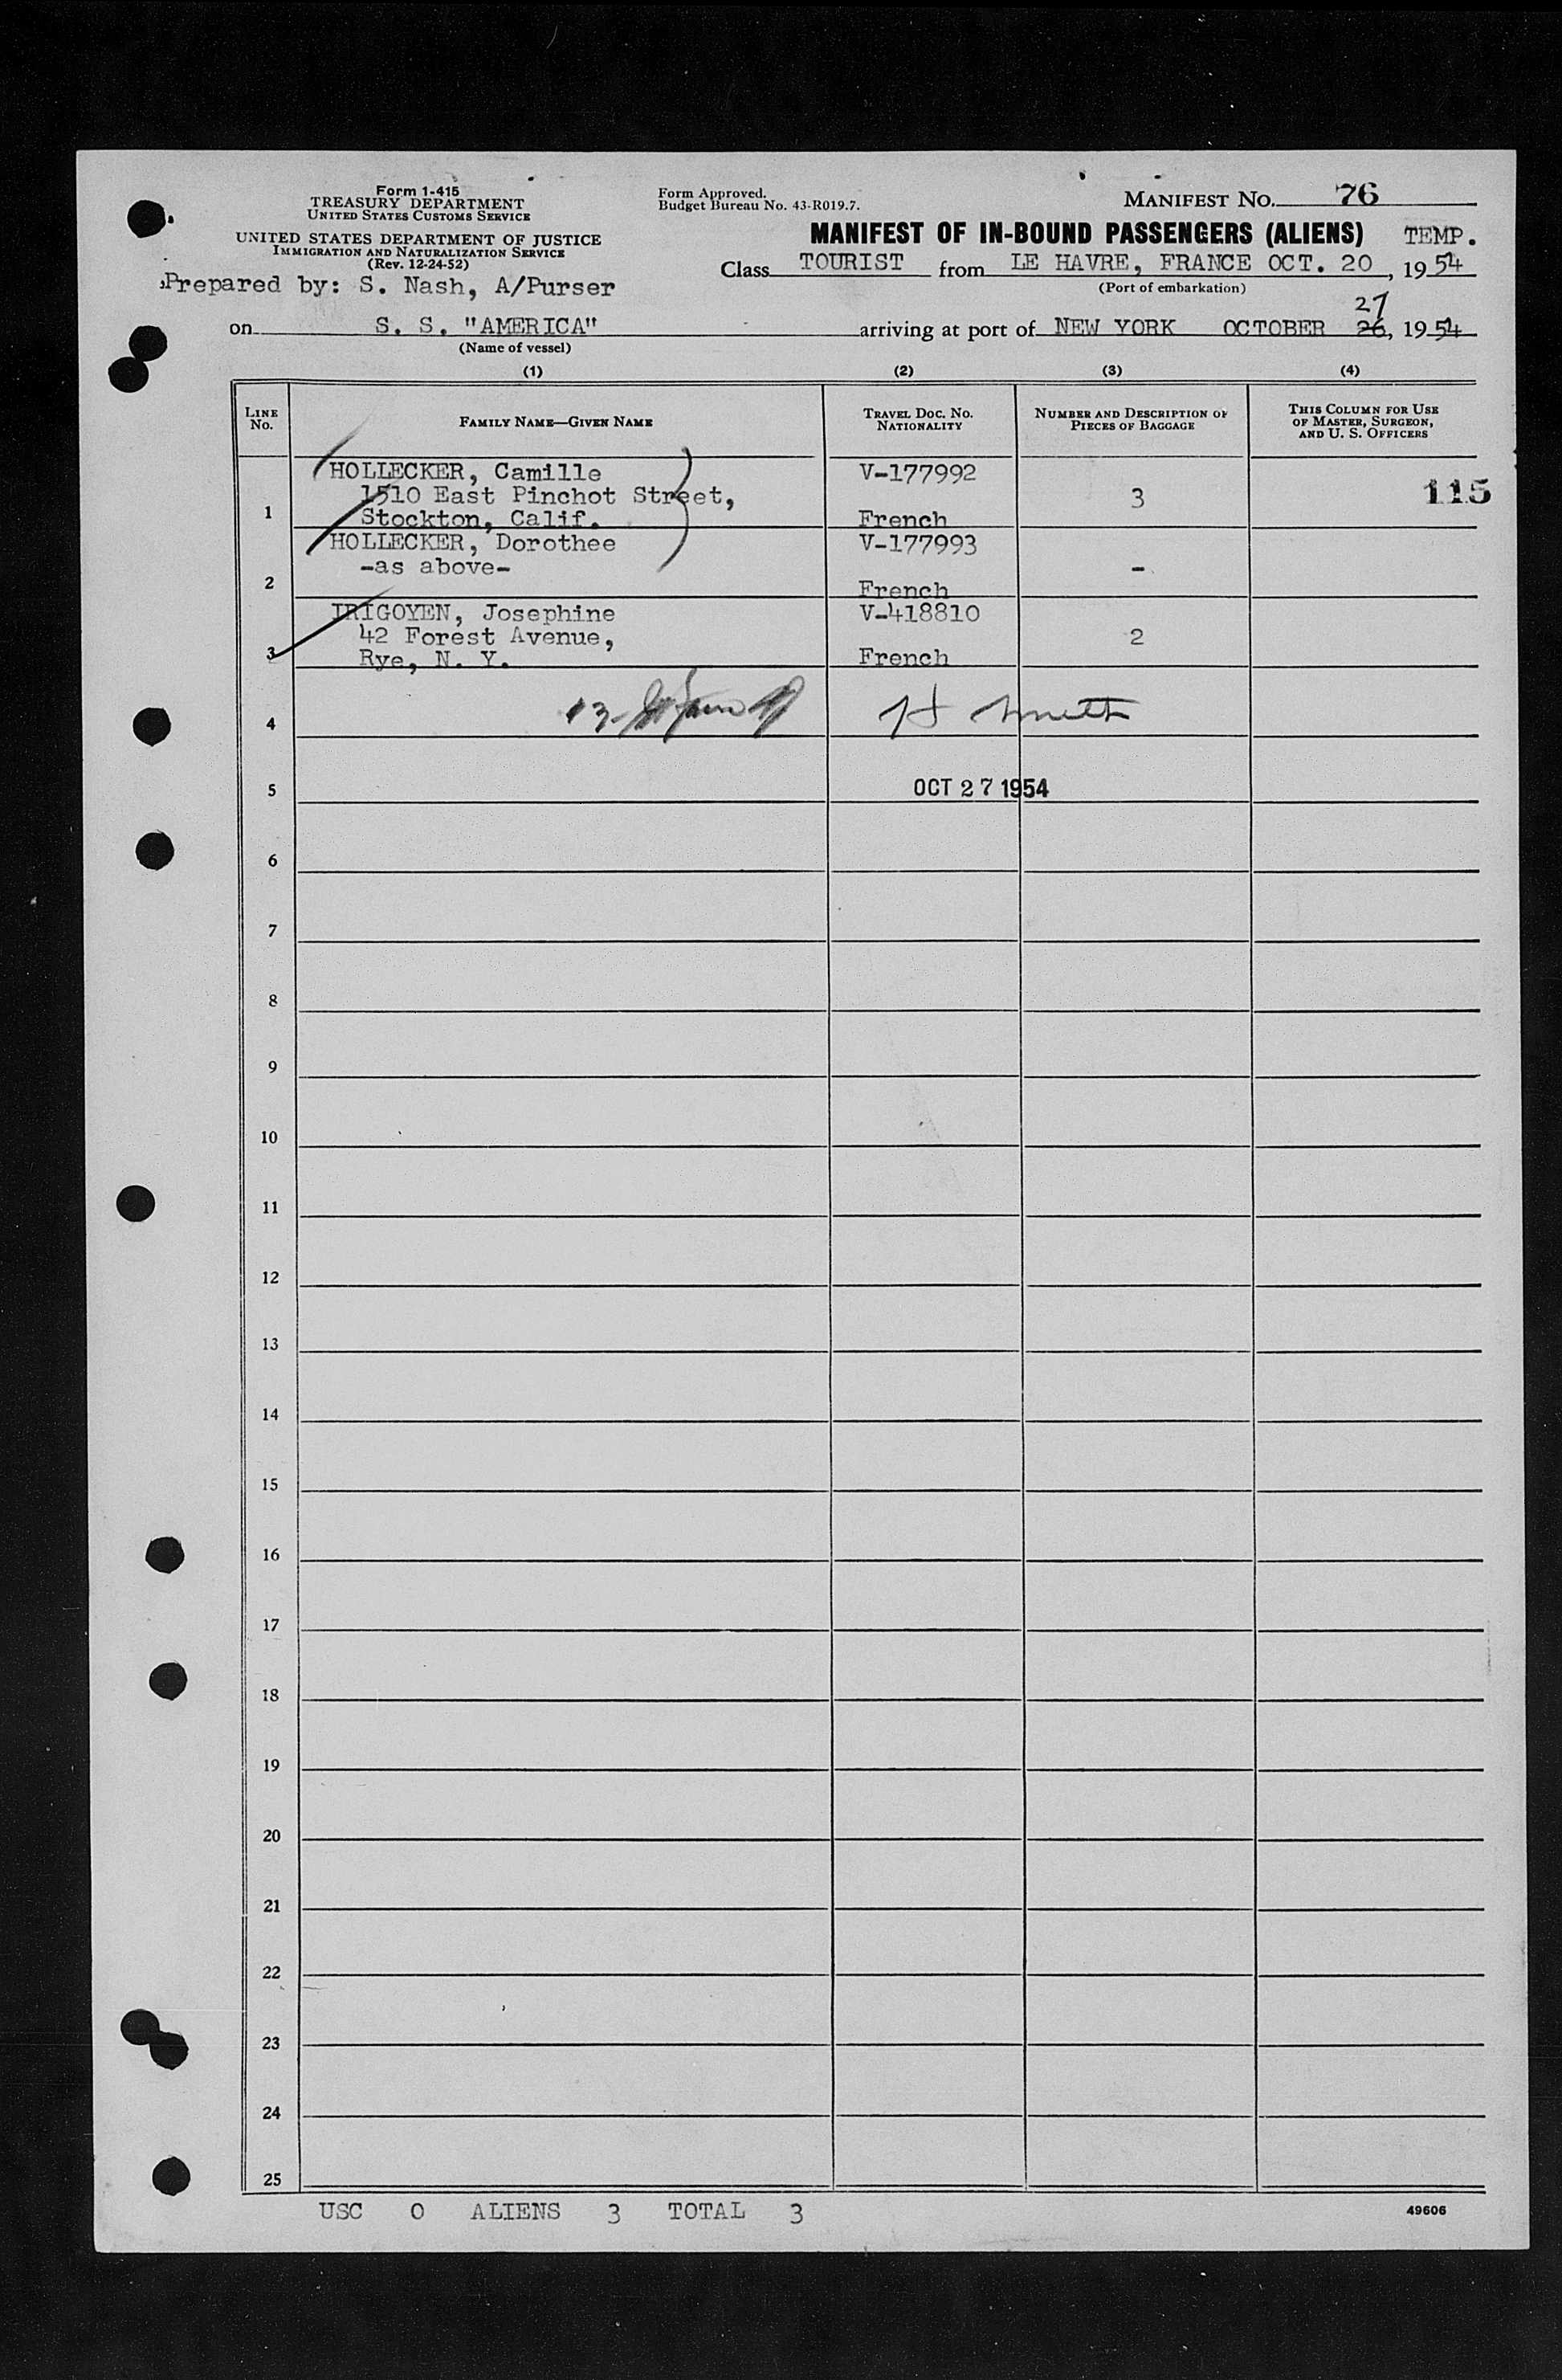 Form 1-415
TREASURY DEPARTMENT
UNITED STATES CUSTOMS SERVICE
UNITED STATES DEPARTMENT OF JUSTICE
IMMIGRATION AND NATURALIZATION SERVICE
(Rev. 12-24-52)
Prepared by: S. Nash, A/Purser
Form Approved.
Budget Bureau No. 43-R019.7.
MANIFEST NO. 76
MANIFEST OF IN-BOUND PASSENGERS (ALIENS) TEMP.
Class TOURIST from LE HAVRE, FRANCE OCT. 20, 1954
(Port of embarkation)
27
on S. S. "AMERICA" arriving at port of NEW YORK OCTOBER 26, 1954
(Name of vessel)
(1) (2) (3) (4)
LINE No.
FAMILY NAME—GIVEN NAME
TRAVEL DOC. NO. NATIONALITY
NUMBER AND DESCRIPTION OF PIECES OF BAGGAGE
THIS COLUMN FOR USE OF MASTER, SURGEON, AND U. S. OFFICERS
HOLLECKER, Camille V-177992
1510 East Pinchot Street, 3 115
1 Stockton, Calif. French
HOLLECKER, Dorothee V-177993
-as above- -
2 French
IRIGOYEN, Josephine V-418810
42 Forest Avenue, 2
3 Rye, N. Y. French
4
5 OCT 27 1954
6
7
8
9
10
11
12
13
14
15
16
17
18
19
20
21
22
23
24
25
USC 0 ALIENS 3 TOTAL 3
49606